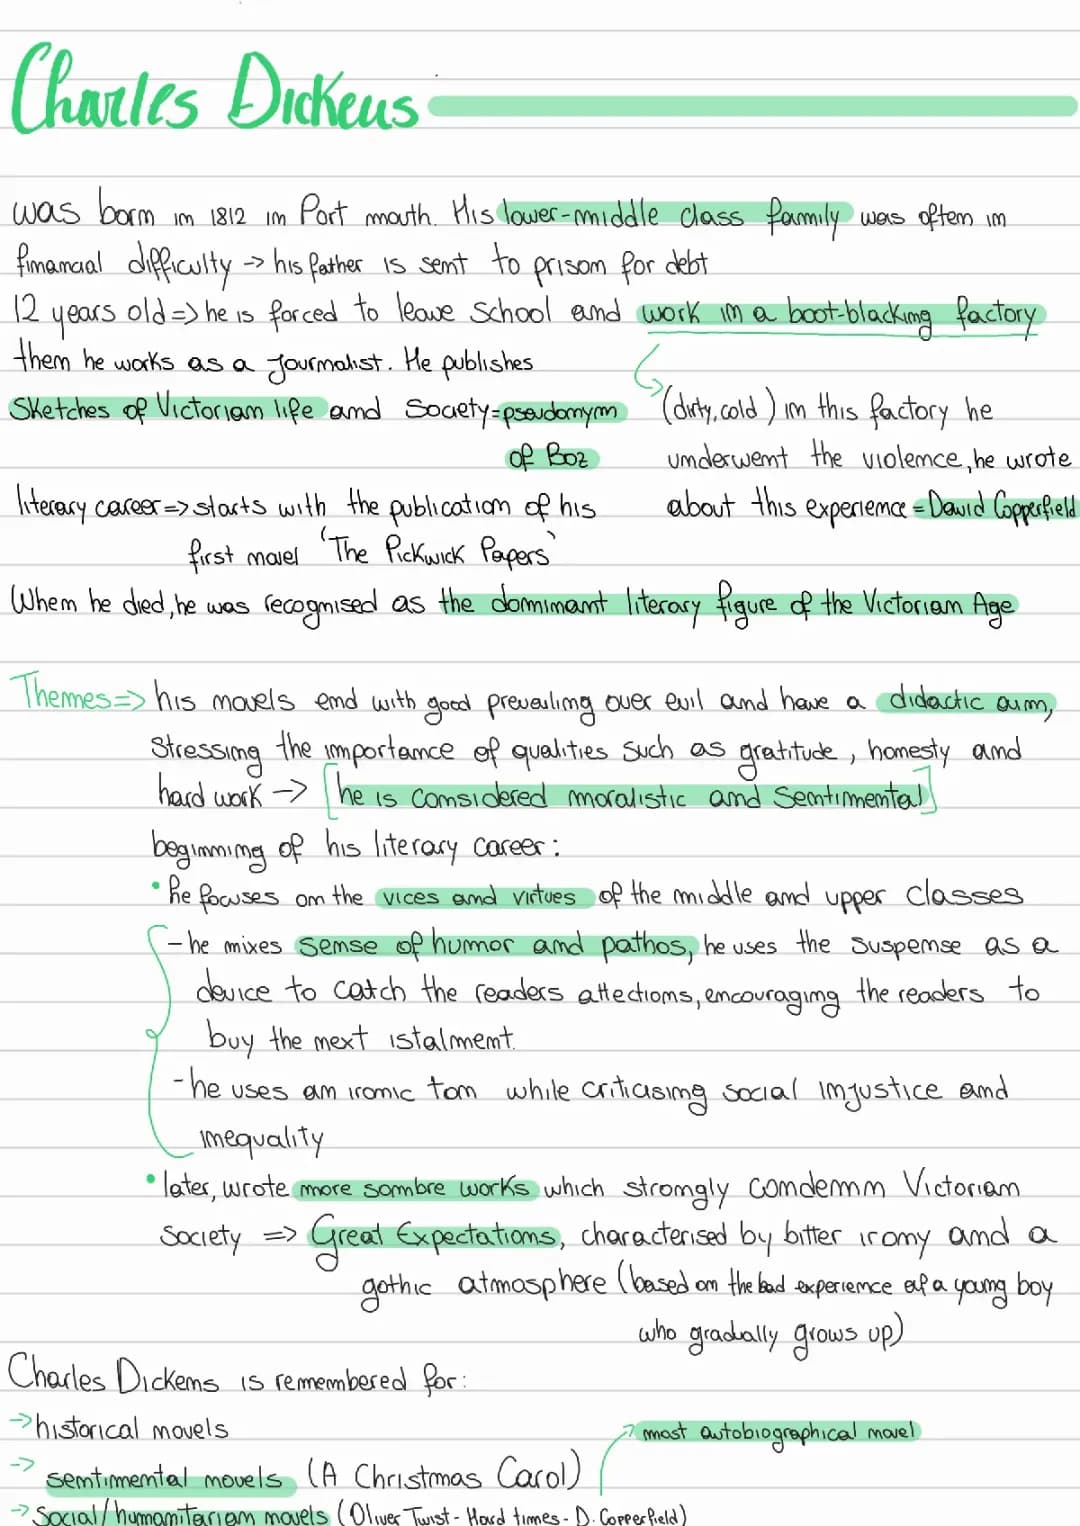 Charles Dickens
was born in 1812 in Port mouth. His lower-middle class family was often in
financial difficulty -> his father is sent to prison for debt
12 years old => he is forced to leave school and work in a boot-blacking factory
then he works as a Journalist. He publishes
Sketches of Victorian life and Society = pseudonym
of Boz
(dirty, cold) in this factory he
underwent the violence, he wrote
about this experience = David Copperfield
literary career => starts with the publication of his
first novel 'The Pickwick Papers'
When he died, he was recognised as the dominant literary figure of the Victorian Age
Themes => his novels end with good prevailing over evil and have a didactic aim,
stressing the importance of qualities such as gratitude, honesty and
hard work -> [he is considered moralistic and sentimental]
beginning of his literary career:
• he focuses on the vices and virtues of the middle and upper classes
- he mixes sense of humor and pathos, he uses the suspense as a
device to catch the readers attections, encouraging the readers to
buy the next istalment.
- he uses an ironic ton while criticising social injustice and
inequality
• later, wrote more sombre works which strongly condemn Victorian
Society => Great Expectations, characterised by bitter irony and a
gothic atmosphere (based on the bad experience of a young boy
who gradually grows up)
Charles Dickens is remembered for:
-> historical novels
-> most autobiographical novel
-> sentimental novels (A Christmas Carol)
-> Social/humanitarian novels (Oliver Twist - Hard times - D. Copperfield)